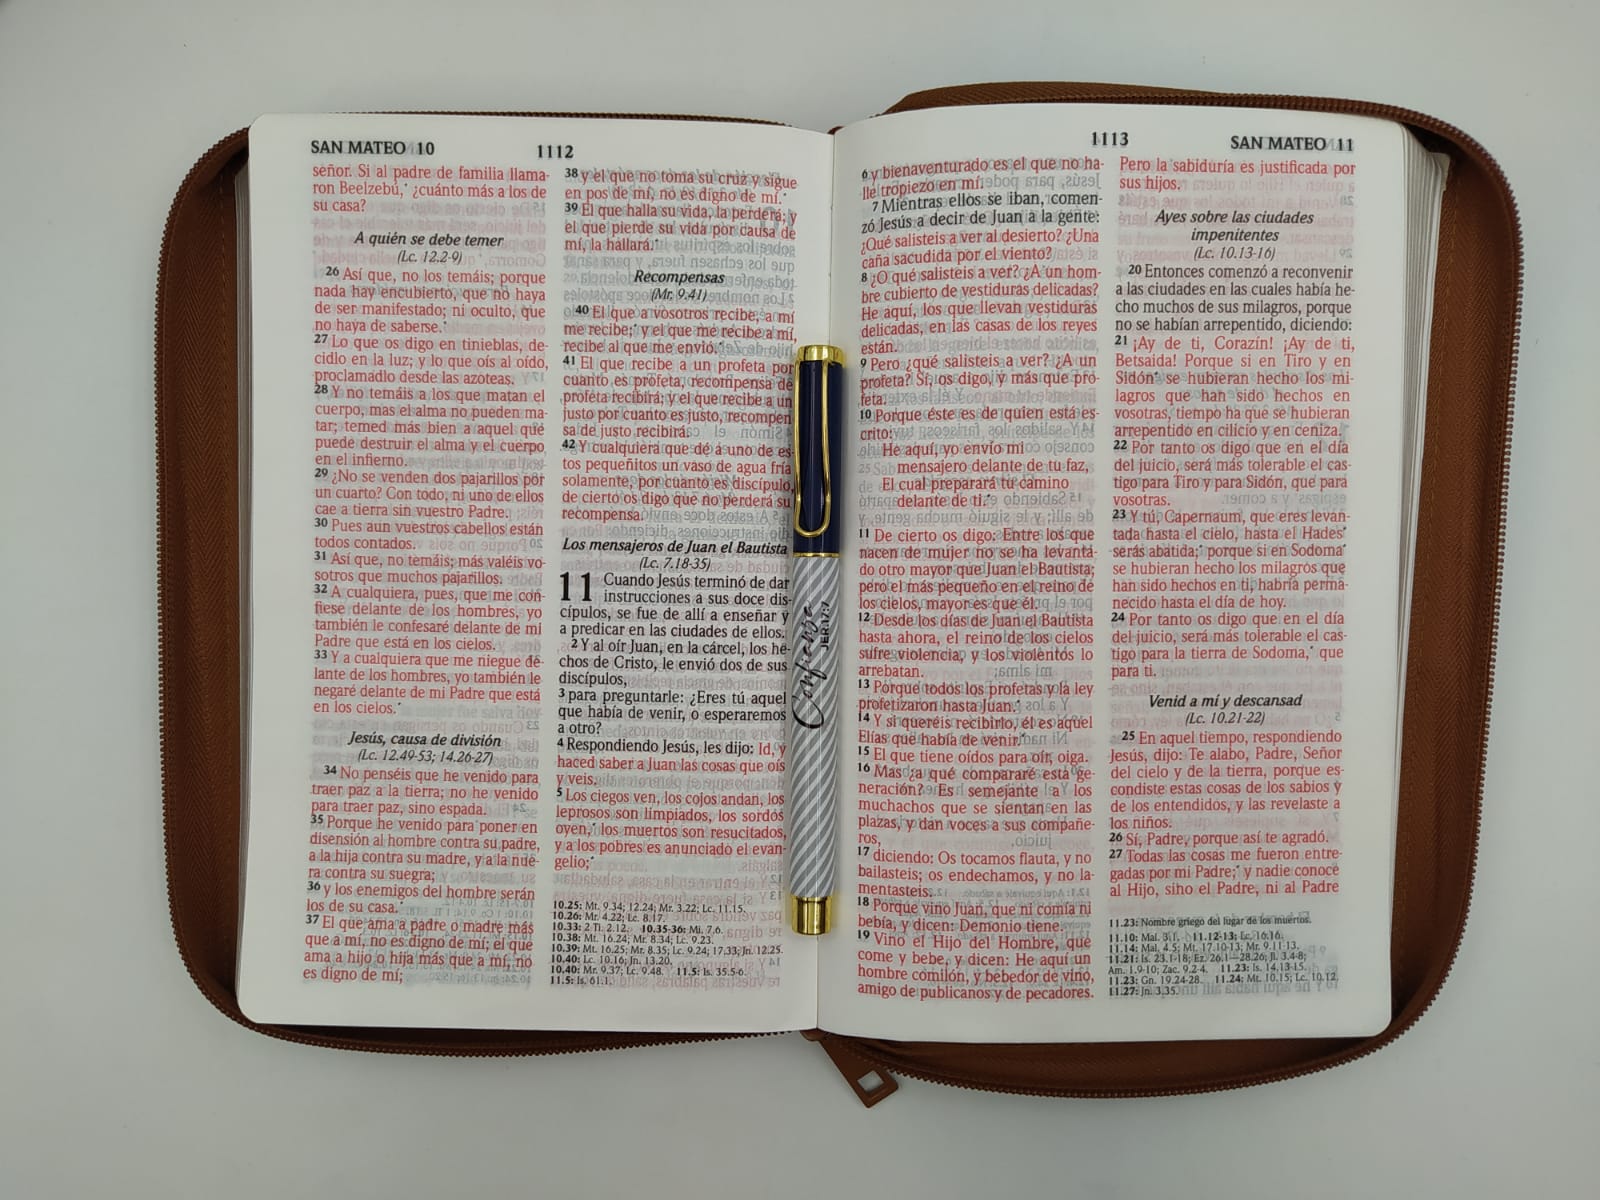 SAN MATEO 10
1112
señor. Si al padre de familia llama-
ron Beelzebú,* ¿cuánto más a los de
su casa?
A quién se debe temer
(Lc. 12.2-9)
26 Así que, no los temáis; porque
nada hay encubierto, que no haya
de ser manifestado; ni oculto, que
no haya de saberse.*
27 Lo que os digo en tinieblas, de-
cidlo en la luz; y lo que oís al oído,
proclamadlo desde las azoteas.
28 Y no temáis a los que matan el
cuerpo, mas el alma no pueden ma-
tar; temed más bien a aquel que
puede destruir el alma y el cuerpo
en el infierno.
29 ¿No se venden dos pajarillos por
un cuarto? Con todo, ni uno de ellos
cae a tierra sin vuestro Padre.
30 Pues aun vuestros cabellos están
todos contados.
31 Así que, no temáis; más valéis vo-
sotros que muchos pajarillos.
32 A cualquiera, pues, que me con-
fiese delante de los hombres, yo
también le confesaré delante de mi
Padre que está en los cielos.
33 Y a cualquiera que me niegue de-
lante de los hombres, yo también le
negaré delante de mi Padre que está
en los cielos.*
Jesús, causa de división
(Lc. 12.49-53; 14.26-27)
34 No penséis que he venido para
traer paz a la tierra; no he venido
para traer paz, sino espada.
35 Porque he venido para poner en
disensión al hombre contra su padre,
a la hija contra su madre, y a la nue-
ra contra su suegra;
36 y los enemigos del hombre serán
los de su casa.*
37 El que ama a padre o madre más
que a mí, no es digno de mí; el que
ama a hijo o hija más que a mí, no
es digno de mí;
38 y el que no toma su cruz y sigue
en pos de mí, no es digno de mí.*
39 El que halla su vida, la perderá; y
el que pierde su vida por causa de
mí, la hallará.*
Recompensas
(Mr. 9.41)
40 El que a vosotros recibe, a mí
me recibe;* y el que me recibe a mí,
recibe al que me envió.*
41 El que recibe a un profeta por
cuanto es profeta, recompensa de
profeta recibirá; y el que recibe a un
justo por cuanto es justo, recompen
sa de justo recibirá.
42 Y cualquiera que dé a uno de es-
tos pequeñitos un vaso de agua fría
solamente, por cuanto es discípulo,
de cierto os digo que no perderá su
recompensa.
Los mensajeros de Juan el Bautista
(Lc. 7.18-35)
11 Cuando Jesús terminó de dar
instrucciones a sus doce dis-
cípulos, se fue de allí a enseñar y
a predicar en las ciudades de ellos.
2 Y al oír Juan, en la cárcel, los he-
chos de Cristo, le envió dos de sus
discípulos,
3 para preguntarle: ¿Eres tú aquel
que había de venir, o esperaremos
a otro?
4 Respondiendo Jesús, les dijo: Id, y
haced saber a Juan las cosas que oís
y veis.
5 Los ciegos ven, los cojos andan, los
leprosos son limpiados, los sordos
oyen,* los muertos son resucitados,
y a los pobres es anunciado el evan-
gelio;*
10.25: Mt. 9.34; 12.24; Mr. 3.22; Lc. 11.15.
10.26: Mr. 4.22; Lc. 8.17.
10.33: 2 Ti. 2.12. 10.35-36: Mi. 7.6.
10.38: Mt. 16.24; Mr. 8.34; Lc. 9.23.
10.39: Mt. 16.25; Mr. 8.35; Lc. 9.24; 17.33; Jn. 12.25.
10.40: Lc. 10.16; Jn. 13.20.
10.40: Mr. 9.37; Lc. 9.48. 11.5: Is. 35.5-6.
11.5: Is. 61.1.
Confianza
JER.17:7
1113
SAN MATEO 11
6 y bienaventurado es el que no ha-
lle tropiezo en mí.
7 Mientras ellos se iban, comen-
zó Jesús a decir de Juan a la gente:
¿Qué salisteis a ver al desierto? ¿Una
caña sacudida por el viento?
8 ¿O qué salisteis a ver? ¿A un hom-
bre cubierto de vestiduras delicadas?
He aquí, los que llevan vestiduras
delicadas, en las casas de los reyes
están.
9 Pero ¿qué salisteis a ver? ¿A un
profeta? Sí, os digo, y más que pro-
feta.
10 Porque éste es de quien está es-
crito:
He aquí, yo envío mi
mensajero delante de tu faz,
El cual preparará tu camino
delante de ti.*
11 De cierto os digo: Entre los que
nacen de mujer no se ha levanta-
do otro mayor que Juan el Bautista;
pero el más pequeño en el reino de
los cielos, mayor es que él.
12 Desde los días de Juan el Bautista
hasta ahora, el reino de los cielos
sufre violencia, y los violentos lo
arrebatan.
13 Porque todos los profetas y la ley
profetizaron hasta Juan.*
14 Y si queréis recibirlo, él es aquel
Elías que había de venir.*
15 El que tiene oídos para oír, oiga.
16 Mas ¿a qué compararé esta ge-
neración? Es semejante a los
muchachos que se sientan en las
plazas, y dan voces a sus compañe-
ros,
17 diciendo: Os tocamos flauta, y no
bailasteis; os endechamos, y no la-
mentasteis.
18 Porque vino Juan, que ni comía ni
bebía, y dicen: Demonio tiene.
19 Vino el Hijo del Hombre, que
come y bebe, y dicen: He aquí un
hombre comilón, y bebedor de vino,
amigo de publicanos y de pecadores.
Pero la sabiduría es justificada por
sus hijos.
Ayes sobre las ciudades
impenitentes
(Lc. 10.13-16)
20 Entonces comenzó a reconvenir
a las ciudades en las cuales había he-
cho muchos de sus milagros, porque
no se habían arrepentido, diciendo:
21 ¡Ay de ti, Corazín! ¡Ay de ti,
Betsaida! Porque si en Tiro y en
Sidón* se hubieran hecho los mi-
lagros que han sido hechos en
vosotras, tiempo ha que se hubieran
arrepentido en cilicio y en ceniza.
22 Por tanto os digo que en el día
del juicio, será más tolerable el cas-
tigo para Tiro y para Sidón, que para
vosotras.
23 Y tú, Capernaum, que eres levan-
tada hasta el cielo, hasta el Hades*
serás abatida;* porque si en Sodoma*
se hubieran hecho los milagros que
han sido hechos en ti, habría perma-
necido hasta el día de hoy.
24 Por tanto os digo que en el día
del juicio, será más tolerable el cas-
tigo para la tierra de Sodoma,* que
para ti.
Venid a mí y descansad
(Lc. 10.21-22)
25 En aquel tiempo, respondiendo
Jesús, dijo: Te alabo, Padre, Señor
del cielo y de la tierra, porque es-
condiste estas cosas de los sabios y
de los entendidos, y las revelaste a
los niños.
26 Sí, Padre, porque así te agradó.
27 Todas las cosas me fueron entre-
gadas por mi Padre;* y nadie conoce
al Hijo, sino el Padre, ni al Padre
11.23: Nombre griego del lugar de los muertos.
11.10: Mal. 3.1. 11.12-13: Lc. 16.16.
11.14: Mal. 4.5; Mt. 17.10-13; Mr. 9.11-13.
11.21: Is. 23.1-18; Ez. 26.1—28.26; Jl. 3.4-8;
Am. 1.9-10; Zac. 9.2-4. 11.23: Is. 14.13-15.
11.23: Gn. 19.24-28. 11.24: Mt. 10.15; Lc. 10.12.
11.27: Jn. 3.35.